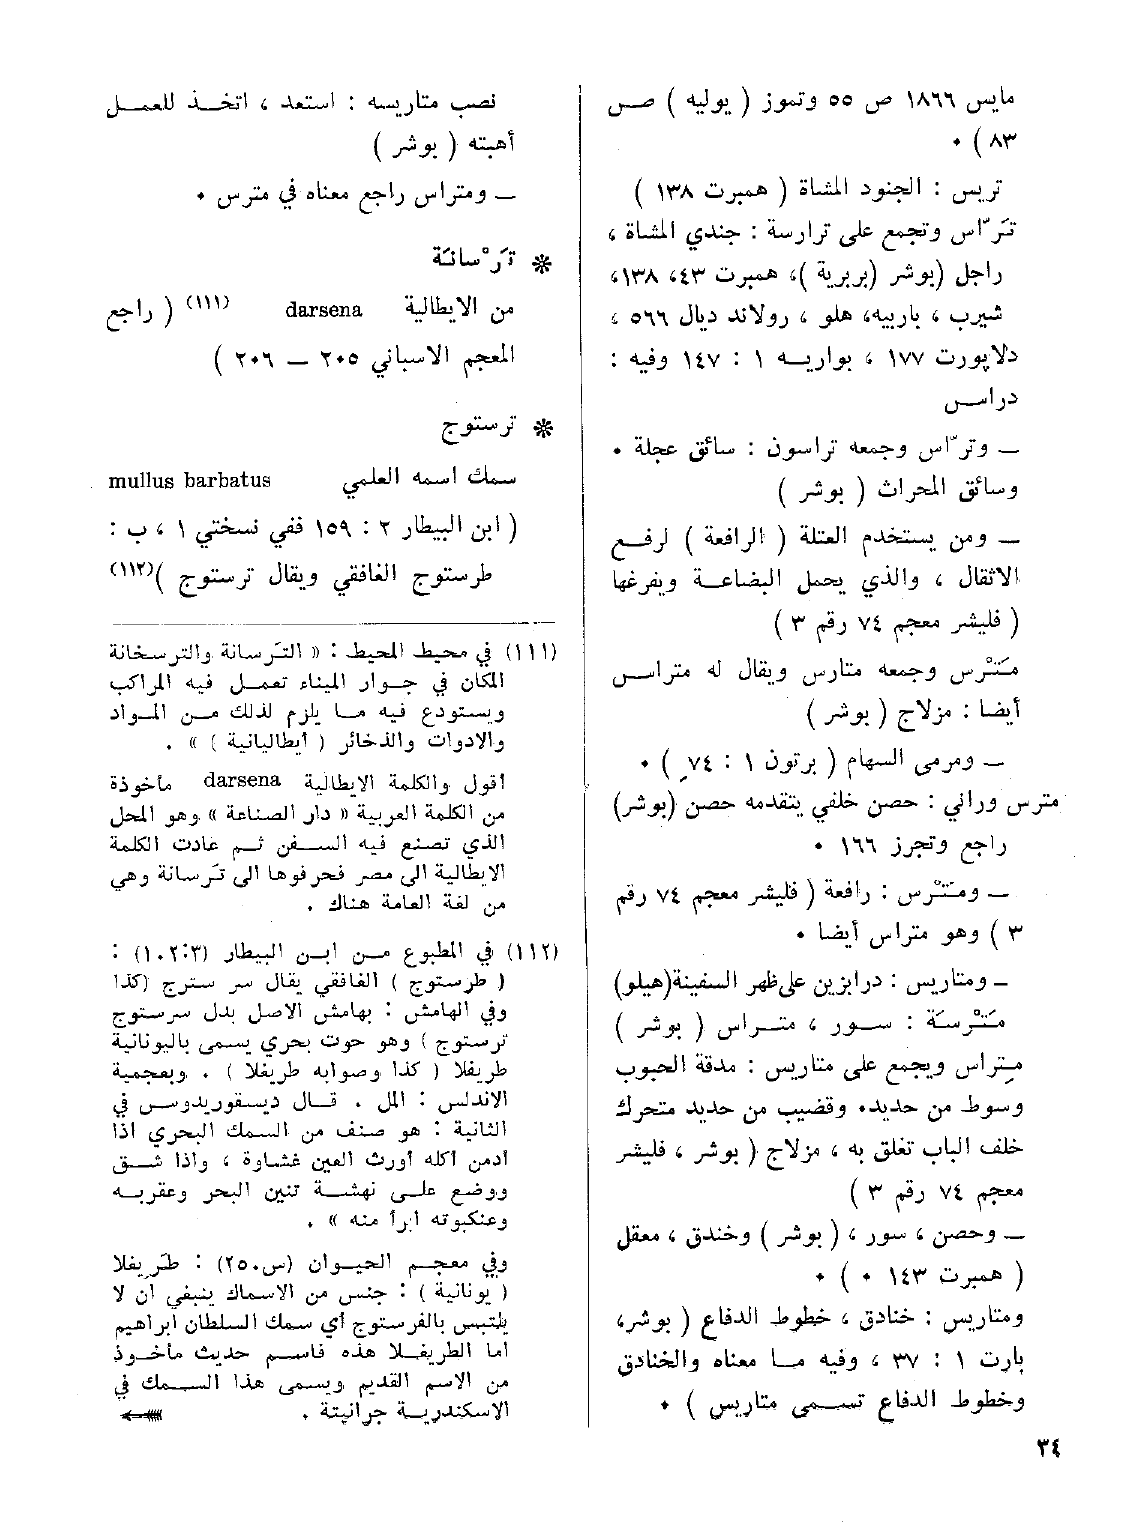 مايس ١٨٦٦ ص ٥٥ وتموز ( يوليه ) ص
٨٣ ) ٠
تريس : الجنود المشاة ( همبرت ١٣٨ )
تَرّاس وتجمع على ترارسة : جندي المشاة ،
راجل (بوشر (بربرية )، همبرت ٤٣، ١٣٨،
شيرب ، باربيه، هلو ، رولاند ديال ٥٦٦ ،
دلاپورت ١٧٧ ، بواريه ١ : ١٤٧ وفيه :
دراس
— وترّاس وجمعه تراسون : سائق عجلة ٠
وسائق المحراث ( بوشر )
— ومن يستخدم العتلة ( الرافعة ) لرفع
الاثقال ، والذي يحمل البضاعة ويفرغها
( فليشر معجم ٧٤ رقم ٣ )
مَتْرس وجمعه متارس ويقال له متراس
أيضا : مزلاج ( بوشر )
— ومرمى السهام ( برتون ١ : ٧٤ ) ٠
مترس وراني : حصن خلفي يتقدمه حصن (بوشر)
راجع وتجرز ١٦٦ ٠
— ومَتْرس : رافعة ( فليشر معجم ٧٤ رقم
٣ ) وهو متراس أيضا ٠
— ومتاريس : درابزين على ظهر السفينة(هيلو)
مَتْرسَة : سور ، متراس ( بوشر )
مِتراس ويجمع على متاريس : مدقة الحبوب
وسوط من حديد٠ وقضيب من حديد متحرك
خلف الباب تغلق به ، مزلاج ( بوشر ، فليشر
معجم ٧٤ رقم ٣ )
— وحصن ، سور ، ( بوشر ) وخندق ، معقل
( همبرت ١٤٣ ٠ ) ٠
ومتاريس : خنادق ، خطوط الدفاع ( بوشر،
بارت ١ : ٣٧ ، وفيه ما معناه والخنادق
وخطوط الدفاع تسمى متاريس ) ٠
نصب متاريسه : استعد ، اتخذ للعمل
أهبته ( بوشر )
— ومتراس راجع معناه في مترس ٠
❋ تَرْسانَة
من الايطالية darsena (١١١) ( راجع
المعجم الاسباني ٢٠٥ — ٢٠٦ )
❋ ترستوج
سمك اسمه العلمي mullus barbatus
( ابن البيطار ٢ : ١٥٩ ففي نسختي ١ ، ب :
طرستوج الغافقي ويقال ترستوج )(١١٢)
(١١١) في محيط المحيط : « التَرسانة والترسخانة
المكان في جوار الميناء تعمل فيه المراكب
ويستودع فيه ما يلزم لذلك من المواد
والادوات والذخائر ( أيطاليانية ) » .
أقول والكلمة الايطالية darsena مأخوذة
من الكلمة العربية « دار الصناعة » وهو المحل
الذي تصنع فيه السفن ثم عادت الكلمة
الايطالية الى مصر فحرفوها الى تَرسانة وهي
من لغة العامة هناك .
(١١٢) في المطبوع من ابن البيطار (١٠٢:٣) :
( طرستوج ) الغافقي يقال سر سترج (كذا
وفي الهامش : بهامش الاصل بدل سرستوج
ترستوج ) وهو حوت بحري يسمى باليونانية
طريفلا ( كذا وصوابه طريغلا ) . وبعجمية
الاندلس : المل . قال ديسقوريدوس في
الثانية : هو صنف من السمك البحري اذا
أدمن أكله أورث العين غشاوة ، واذا شق
ووضع على نهشة تنين البحر وعقربه
وعنكبوته أبرأ منه » .
وفي معجم الحيوان (س٢٥٠) : طَرِيغلا
( يونانية ) : جنس من الاسماك ينبغي أن لا
يلتبس بالفرستوج أي سمك السلطان ابراهيم
أما الطريغلا هذه فاسم حديث مأخوذ
من الاسم القديم ويسمى هذا السمك في
الاسكندرية جرانيتة .
٣٤